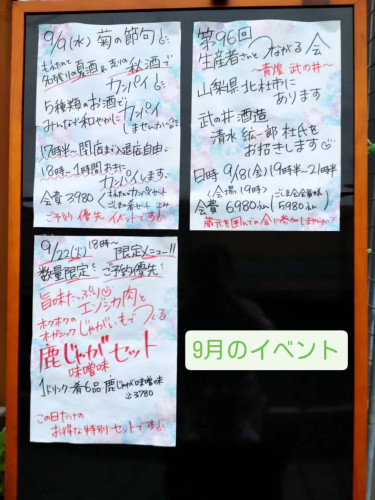 9/9(水) 菊の節句
名残りの夏酒&走りの秋酒で
カンパイ
5種類のお酒で
みんなで和やかにカンパイ
しませんか
17時半〜閉店まで入退店自由
18時〜1時間おきに
カンパイします
会費 3980
ご予約優先 イベントです
第96回
生産者さんとつながる会
〜青煌 武の井〜
山梨県北杜市に
あります
武の井酒造
清水紘一郎杜氏を
お招きします
日時 9/18(金)19時半〜21時半
<会場19時>
会費 6980
(5980)
蔵元を囲んでの会に参加しませんか
9/22(火)18時〜 限定メニュー!!
数量限定!ご予約優先!
旨味たっぷり
エゾシカ肉と
ホクホクの
オーガニックじゃがいもでつくる
鹿じゃがセット
味噌味
1ドリンク 肴6品 鹿じゃが味噌味
3780
この日だけの
お得な特別セットです
9月のイベント